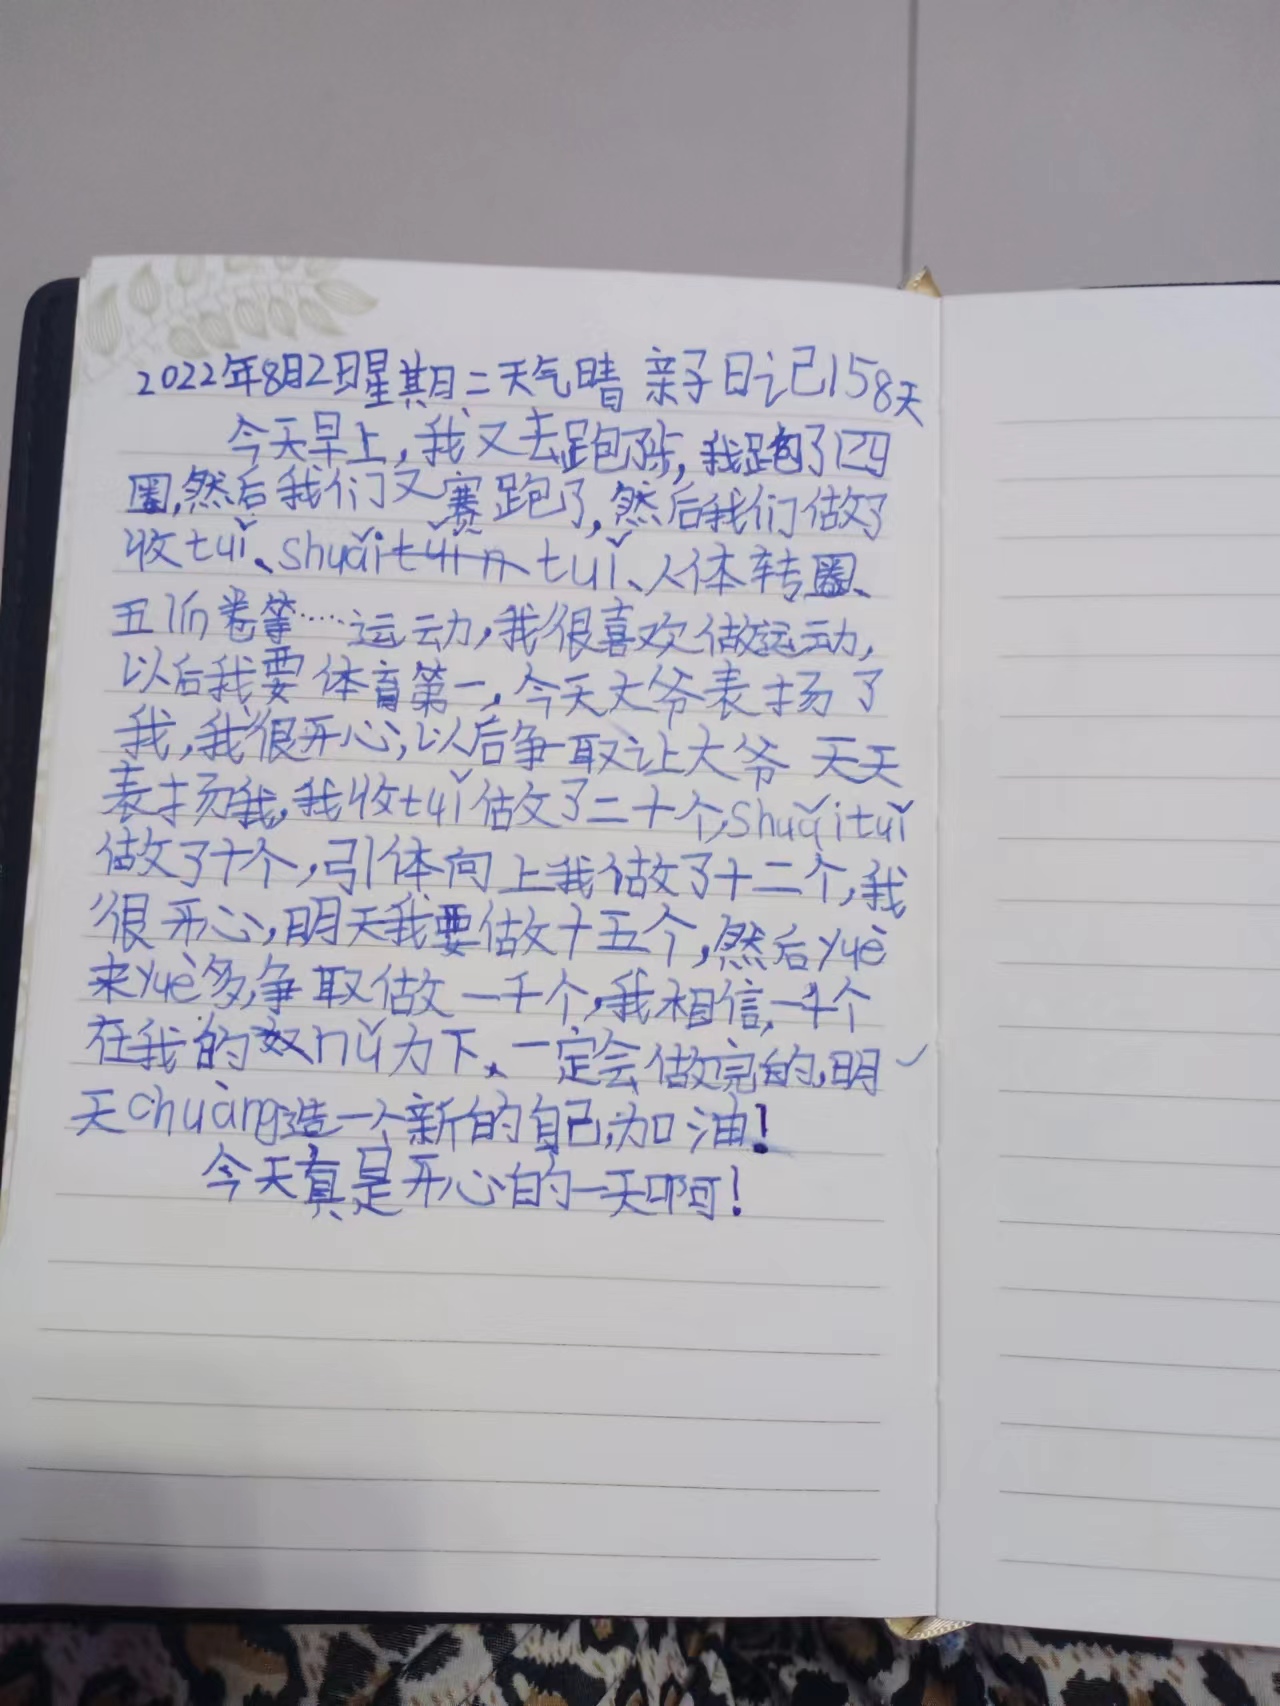 2022年8月2日星期二天气晴 亲子日记158天
今天早上,我又去跑了,我跑了四
圈,然后我们又赛跑了,然后我们做了
收tuǐ、shuǎi tuǐ、人体转圈、
五 卷 ……运动,我很喜欢做运动,
以后我要体育第一,今天大爷表扬了
我,我很开心,以后争取让大爷天天
表扬我,我收tuǐ做了二十个,shuǎituǐ
做了十个,引体向上我做了十二个,我
很开心,明天我要做十五个,然后yuè
来yuè多,争取做一千个,我相信,一千个
在我的 nǔ力下、一定会做完的,明
天chuàng造一个新的自己,加油!
今天真是开心的一天啊!